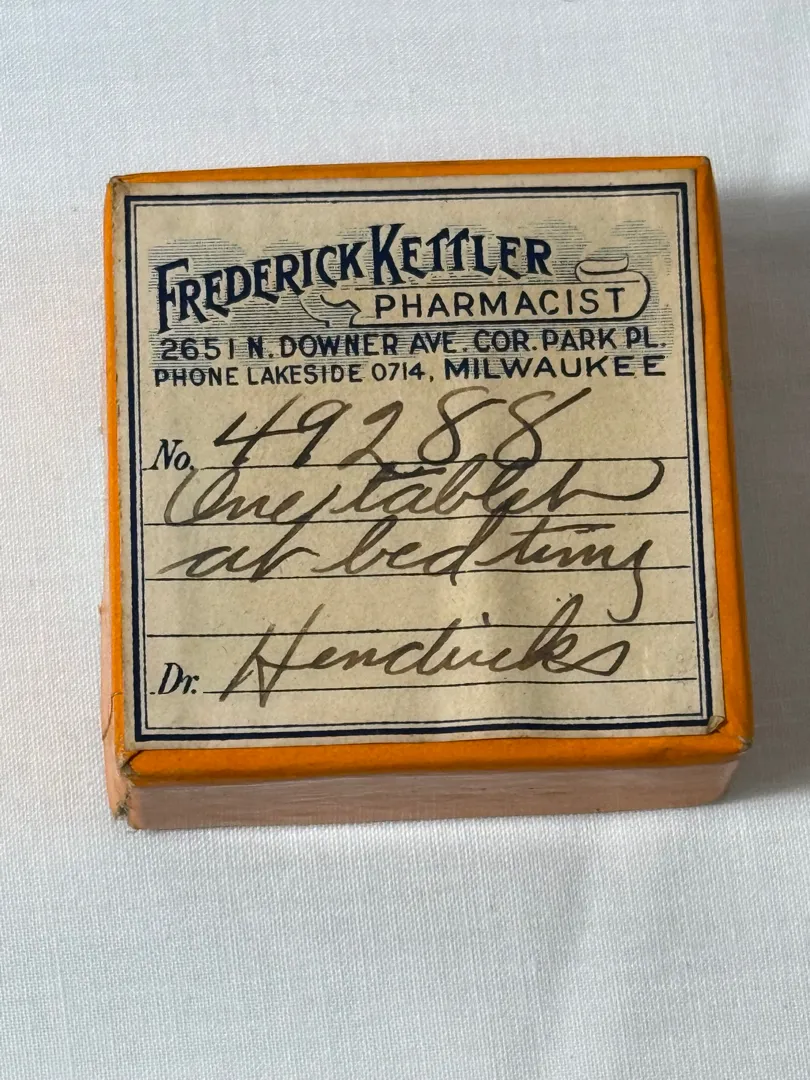 FREDERICK KETTLER
PHARMACIST
2651 N. DOWNER AVE. COR. PARK PL.
PHONE LAKESIDE 0714, MILWAUKEE
No. 49288
One tablet
at bed time
Dr. Hendricks